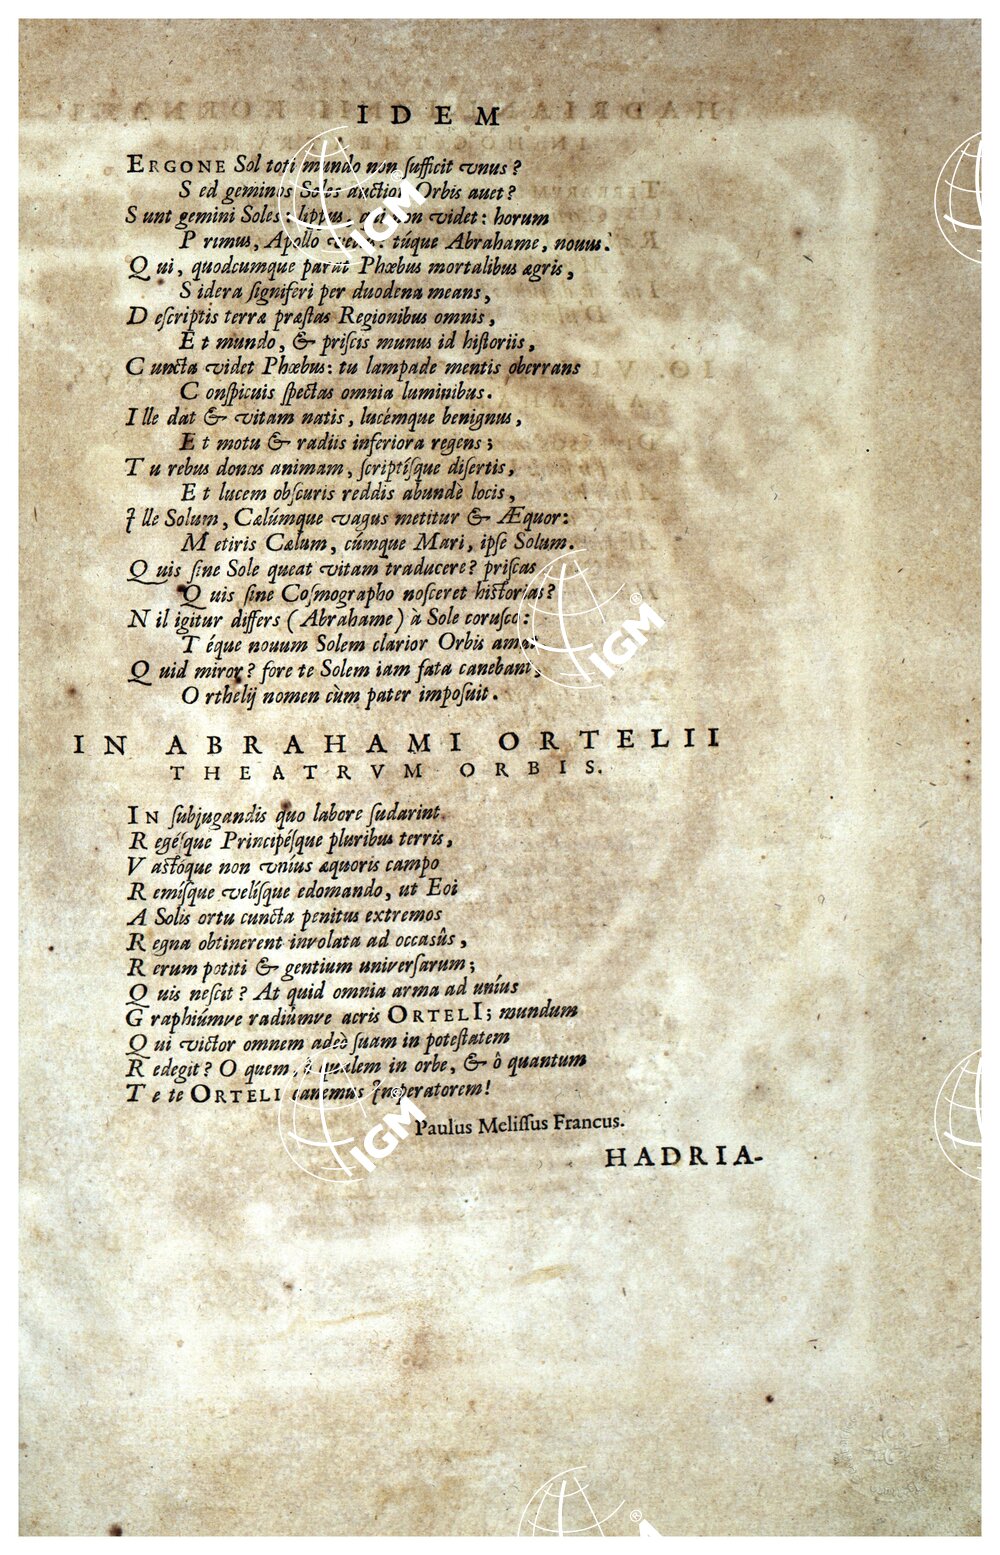 IDEM
ERGONE Sol toti mundo non ſufficit vnus?
Sed geminos Soles auctior Orbis auet?
Sunt gemini Soles: lippus, qui non videt: horum
Primus, Apollo vetus: túque Abrahame, nouus.
Qui, quodcumque parat Phœbus mortalibus ægris,
Sidera ſigniferi per duodena means,
Deſcriptis terræ præſtas Regionibus omnis,
Et mundo, & priſcis munus id hiſtoriis,
Cuncta videt Phœbus: tu lampade mentis oberrans
Conſpicuis ſpectas omnia luminibus.
Ille dat & vitam natis, lucémque benignus,
Et motu & radiis inferiora regens;
Tu rebus donas animam, ſcriptíſque diſertis,
Et lucem obſcuris reddis abundè locis,
Ille Solum, Cælúmque vagus metitur & Æquor:
Metiris Cælum, cúmque Mari, ipſe Solum.
Quis ſine Sole queat vitam traducere? priſcas
Quis ſine Coſmographo noſceret hiſtorias?
Nil igitur differs (Abrahame) à Sole coruſco:
Téque nouum Solem clarior Orbis amat
Quid miror? fore te Solem iam fata canebant,
Orthelij nomen cùm pater impoſuit.
IN ABRAHAMI ORTELII
THEATRVM ORBIS.
IN ſubjugandis quo labore ſudarint
Regéſque Principéſque pluribus terris,
Vaſtóque non vníus æquoris campo
Remíſque velíſque edomando, ut Eoi
A Solis ortu cuncta penitus extremos
Regna obtinerent involata ad occasûs,
Rerum potiti & gentium univerſarum;
Quis neſcit? At quid omnia arma ad uníus
Graphiúmve radiúmve acris ORTELI; mundum
Qui victor omnem adeò ſuam in poteſtatem
Redegit? O quem, ô qualem in orbe, & ô quantum
Te te ORTELI canemus Imperatorem!
Paulus Meliſſus Francus.
HADRIA-
IGM
IGM
IGM